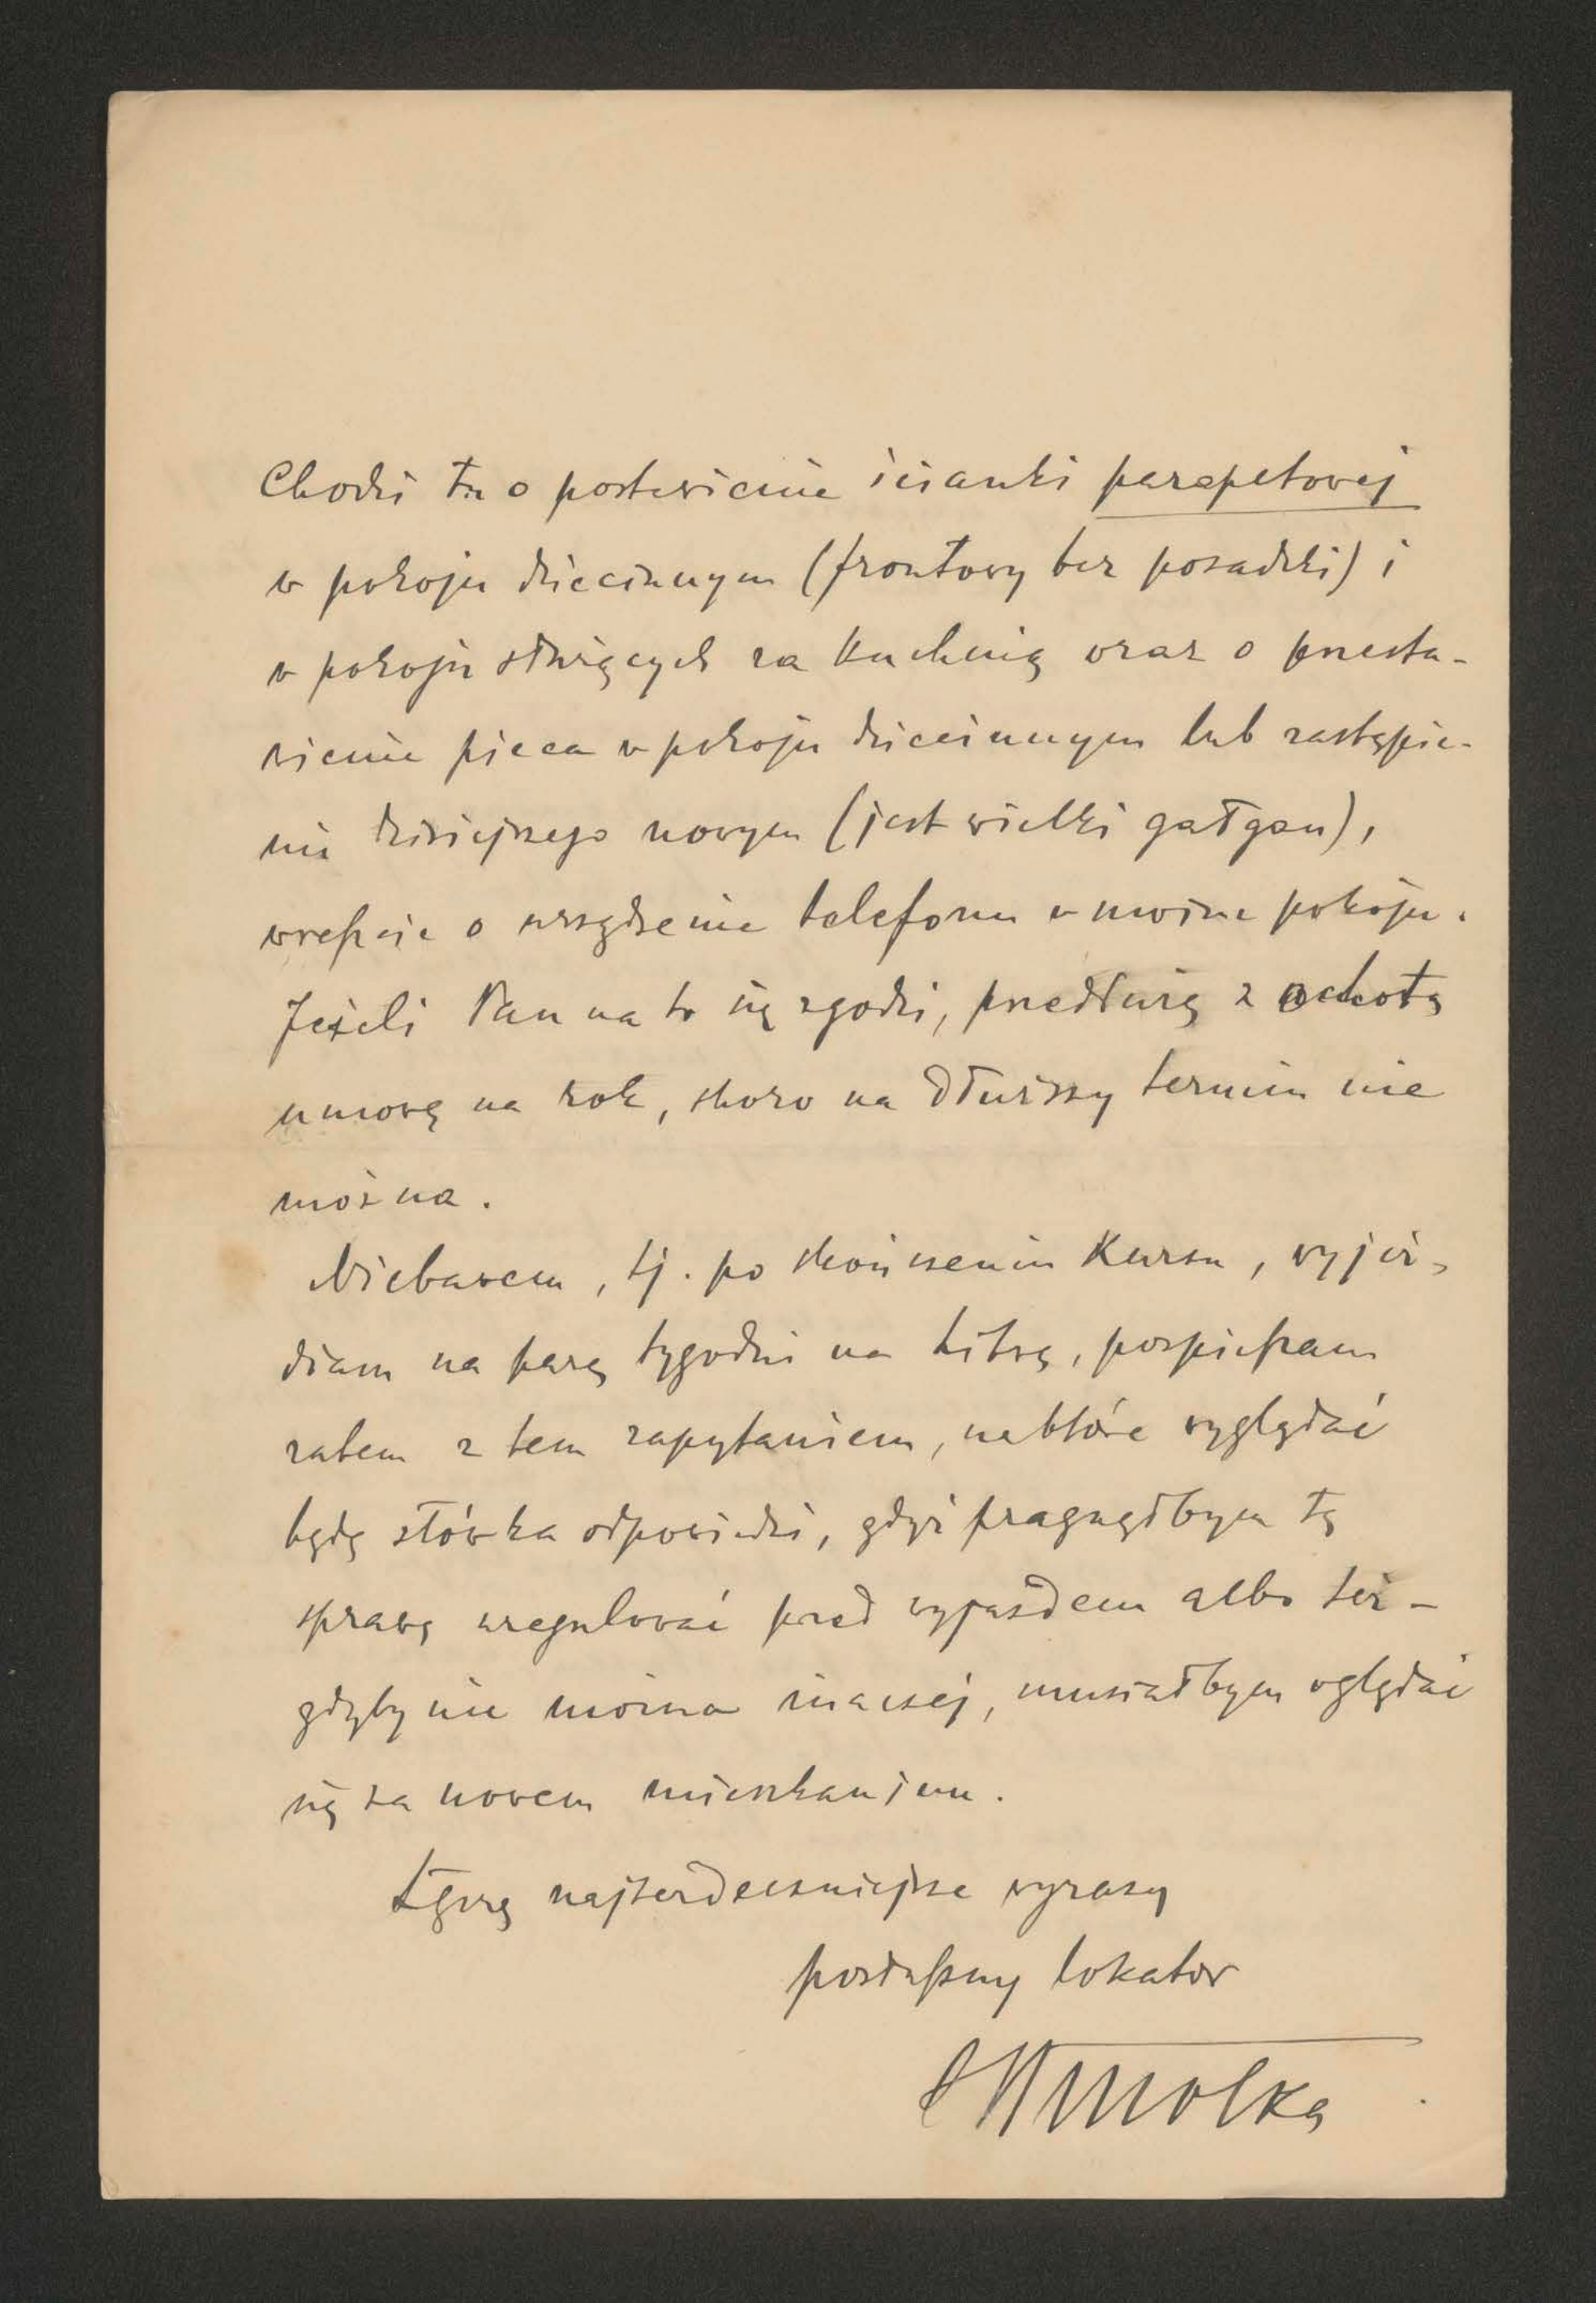 Chodzi tu o postawienie ścianki parapetowej
w pokoju dziecinnym (frontowy bez posadzki) i
w pokoju służących za kuchnią oraz o przesta-
wienie pieca w pokoju dziecinnym lub zastąpie-
nie dzisiejszego nowym (jest wielki gałgan),
wreszcie o urządzenie telefonu w moim pokoju.
Jeżeli Pan na to się zgodzi, przedłużę z ochotą
umowę na rok, skoro na dłuższy termin nie
można.
Niebawem, tj. po skończeniu kursu, wyjeż-
dżam na parę tygodni na Litwę, pospieszam
zatem z tem zapytaniem, na które wyglądać
będę słówka odpowiedzi, gdyż pragnąłbym tę
sprawę uregulować przed wyjazdem albo też -
gdyby nie można inaczej, musiałbym oglądać
się za nowem mieszkaniem.
Łączę najserdeczniejsze wyrazy
posłuszny lokator
Smolka